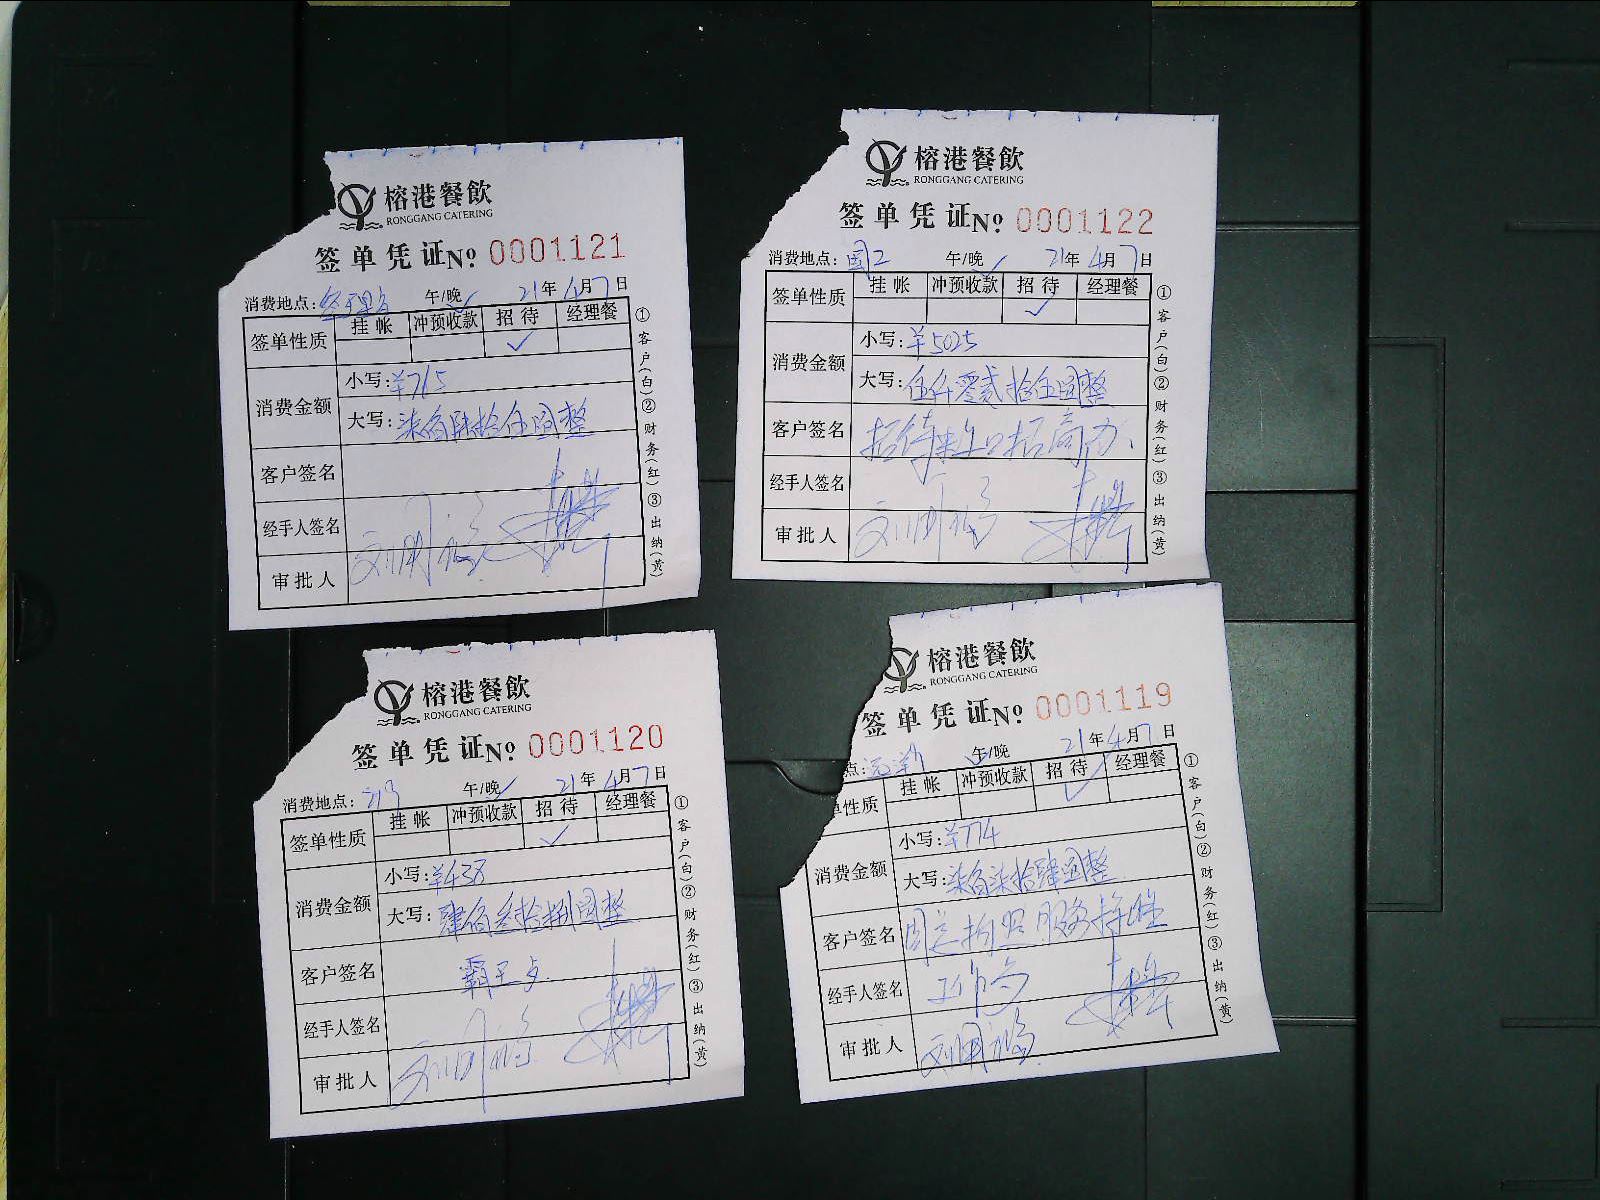 榕港餐飲
RONGGANG CATERING
签单凭证№ 0001121
消费地点: 经理房 午/晚 21年4月7日
签单性质 挂帐 冲预收款 招待 经理餐
✓
消费金额 小写:¥765
大写:柒佰陆拾伍圆整
客户签名
经手人签名
审批人
①客户(白)②财务(红)③出纳(黄)
榕港餐飲
RONGGANG CATERING
签单凭证№ 0001122
消费地点: 国2 午/晚 21年4月7日
签单性质 挂帐 冲预收款 招待 经理餐
✓
消费金额 小写:¥5025
大写:伍仟零贰拾伍圆整
客户签名 招待 招商办
经手人签名
审批人
①客户(白)②财务(红)③出纳(黄)
榕港餐飲
RONGGANG CATERING
签单凭证№ 0001120
消费地点: 午/晚 21年4月7日
签单性质 挂帐 冲预收款 招待 经理餐
✓
消费金额 小写:¥438
大写:肆佰叁拾捌圆整
客户签名 霸王
经手人签名
审批人
①客户(白)②财务(红)③出纳(黄)
榕港餐飲
RONGGANG CATERING
签单凭证№ 0001119
点: 午/晚 21年4月7日
单性质 挂帐 冲预收款 招待 经理餐
✓
消费金额 小写:¥774
大写:柒佰柒拾肆圆整
客户签名 服务
经手人签名
审批人
①客户(白)②财务(红)③出纳(黄)